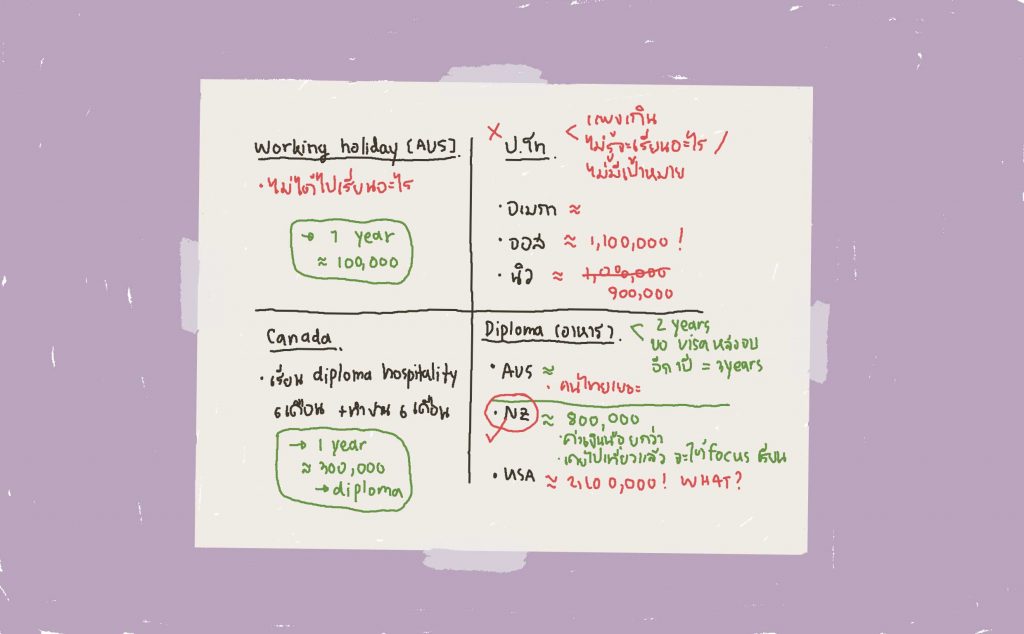 Working holiday (AUS).
• ไม่ได้ไปเรียนอะไร
→ 1 year
≈ 100,000
× ป.โท <
แพงเกิน
ไม่รู้จะเรียนอะไร /
ไม่มีเป้าหมาย
• อเมกา ≈
• ออส ≈ 1,100,000 !
• นิว ≈ 1,000,000
900,000
Canada.
• เรียน diploma hospitality
6 เดือน + ทำงาน 6 เดือน
→ 1 year
≈ 300,000
→ diploma
Diploma (อาหาร). <
2 years
ขอ visa หลังจบ
อีก 1 ปี = 3 years
• AUS ≈
• คนไทยเยอะ
• NZ ≈ 800,000
• ค่าเงินน้อยกว่า
• เคยไปเที่ยวแล้ว จะได้ focus เรียน
• USA ≈ 2,100,000! WHAT?